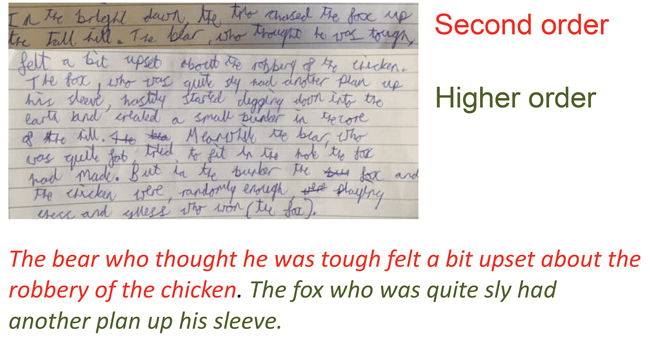 In the bright dawn, the trio chased the fox up
the tall hill. The bear, who thought he was tough,
felt a bit upset about the robbery of the chicken.
The fox, who was quite sly had another plan up
his sleeve, hastily started digging down into the
earth and created a small bunker in the core
of the hill. Meanwhile the bear, who
was quite fat, tried to fit in the hole the fox
had made. But in the bunker the fox and
the chicken were, randomly enough playing
chess and guess who won (the fox).
Second order
Higher order
The bear who thought he was tough felt a bit upset about the
robbery of the chicken. The fox who was quite sly had
another plan up his sleeve.